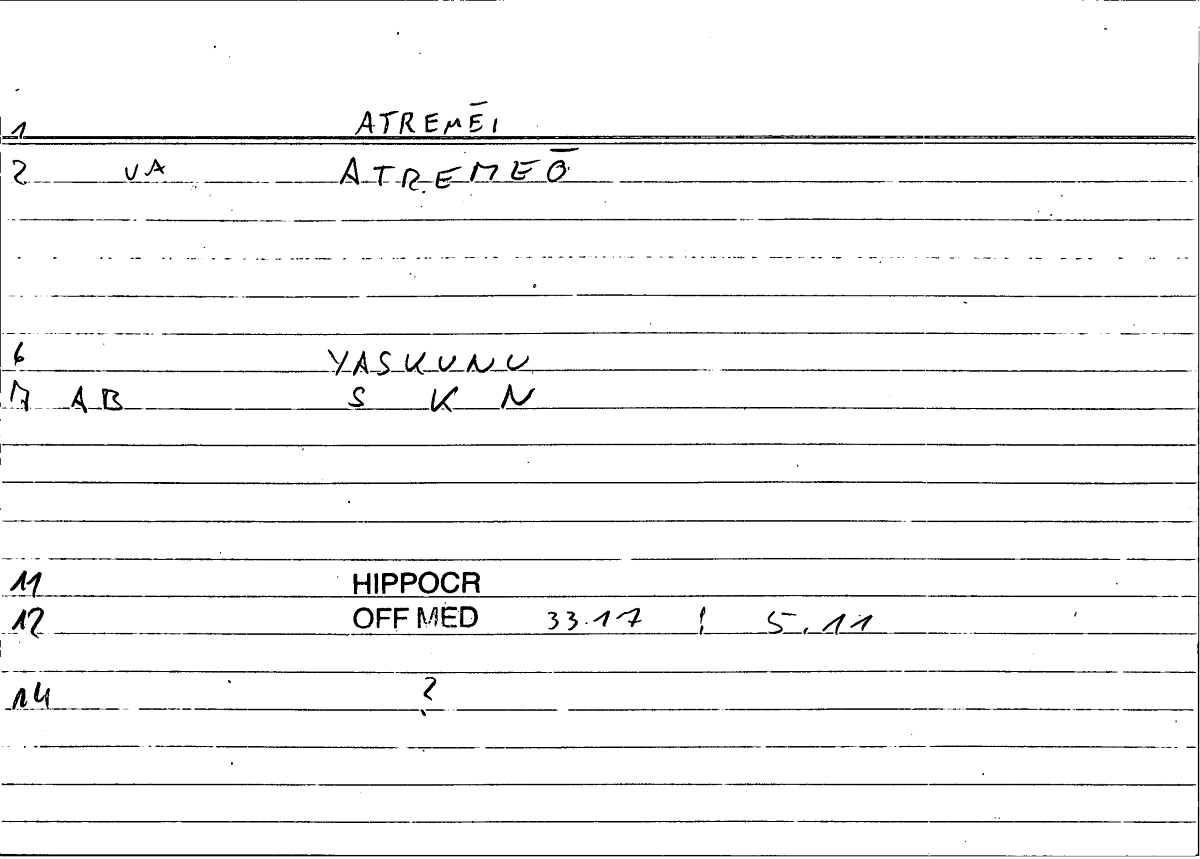 1 ATREMĒI
2 VA ATREMEŌ
6 YASKUNU
7 AB S K N
11 HIPPOCR
12 OFF MED 33.17 ¦ 5.11
14 ?